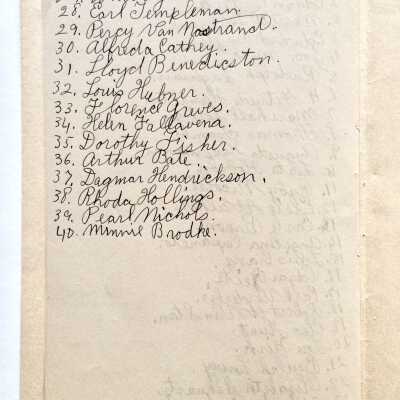 28. Earl Templeman.
29. Percy Van Nostrand.
30. Alfreda Cathey.
31. Lloyd Benedicston.
32. Louis Hubner.
33. Florence Greves.
34. Helen Fallavena.
35. Dorothy Fisher.
36. Arthur Bate.
37. Dagmar Hendrickson.
38. Rhoda Hollings.
39. Pearl Nichols.
40. Minnie Brodke.